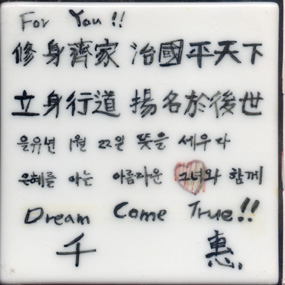 For You!!
修身齊家 治國平天下
立身行道 揚名於後世
을유년 1월 22일 뜻을 세우다
은혜를 아는 아름다운 그녀와 함께
Dream Come True!!
千 惠